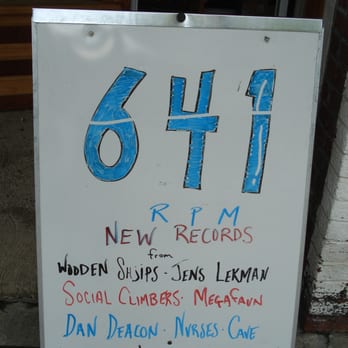 641
RPM
NEW RECORDS
from
WOODEN SHJIPS · JENS LEKMAN
SOCIAL CLIMBERS · MEGAFAUN
DAN DEACON · NURSES · CAVE